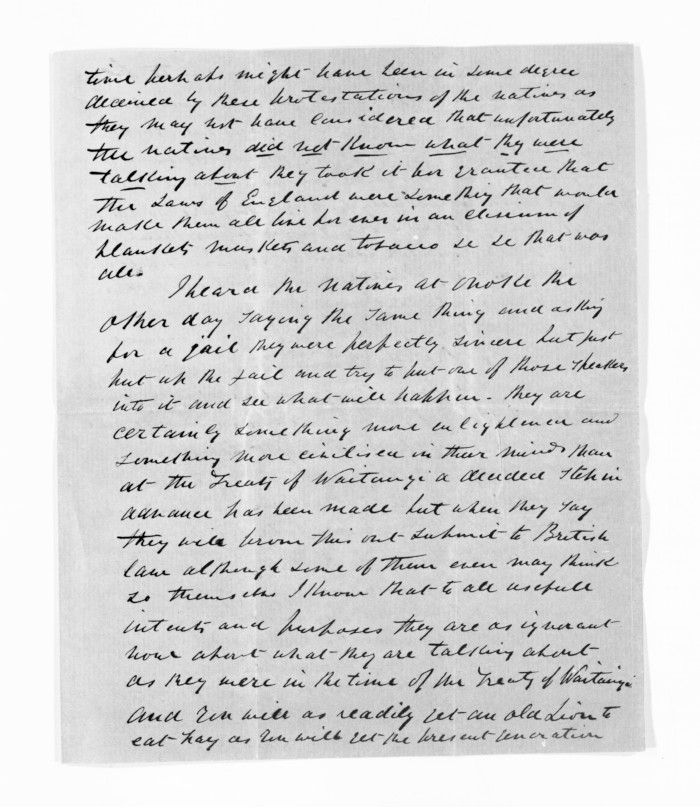 time perhaps might have been in some degree
deceived by these protestations of the natives as
they may not have considered that unfortunately
the natives did not know what they were
talking about they took it for granted that
the Laws of England were something that would
make them all live for ever in an elisium of
blankets muskets and tobacco &c &c that was
all.
I heard the natives at Onoke the
other day saying the same thing and asking
for a jail they were perfectly sincere but just
put up the jail and try to put one of those speakers
into it and see what will happen - they are
certainly something more enlightened and
something more civilised in their minds than
at the Treaty of Waitangi a decided step in
advance has been made but when they say
they will from this out submit to British
law although some of them even may think
so themselves I know that to all usefull
intents and purposes they are as ignorant
now about what they are talking about
as they were in the time of the Treaty of Waitangi
and you will as readily get an old Lion to
eat hay as you will get the present generation